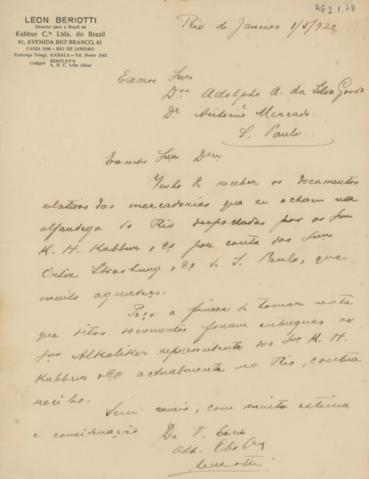 AG2.1.78
LEON BERIOTTI
Director para o Brazil de
Kabbur C.ia Ltda. do Brazil
61, AVENIDA RIO BRANCO, 61
RIO DE JANEIRO
Rio de Janeiro 1/5/92
Exmos Snrs
Drs Adolpho A. da Silva Gordo
Dr Antonio Mercado
S. Paulo
Exmos Snrs Drs
Venho de receber os documentos
relativos das mercadorias que se acham na
alfandega do Rio despachadas por os Snrs
K. H. Kabbur & Co por conta dos Snrs
Strasburg & Co de S. Paulo, que
muito agradeço.
Peço a fineza de tomar nota
que ditos documentos foram entregues ao
Snr Alkaliker representante dos Srs K. H.
Kabbur & Co actualmente no Rio, contra
recibo.
Sem mais, com muita estima
e consideração De V. Exas